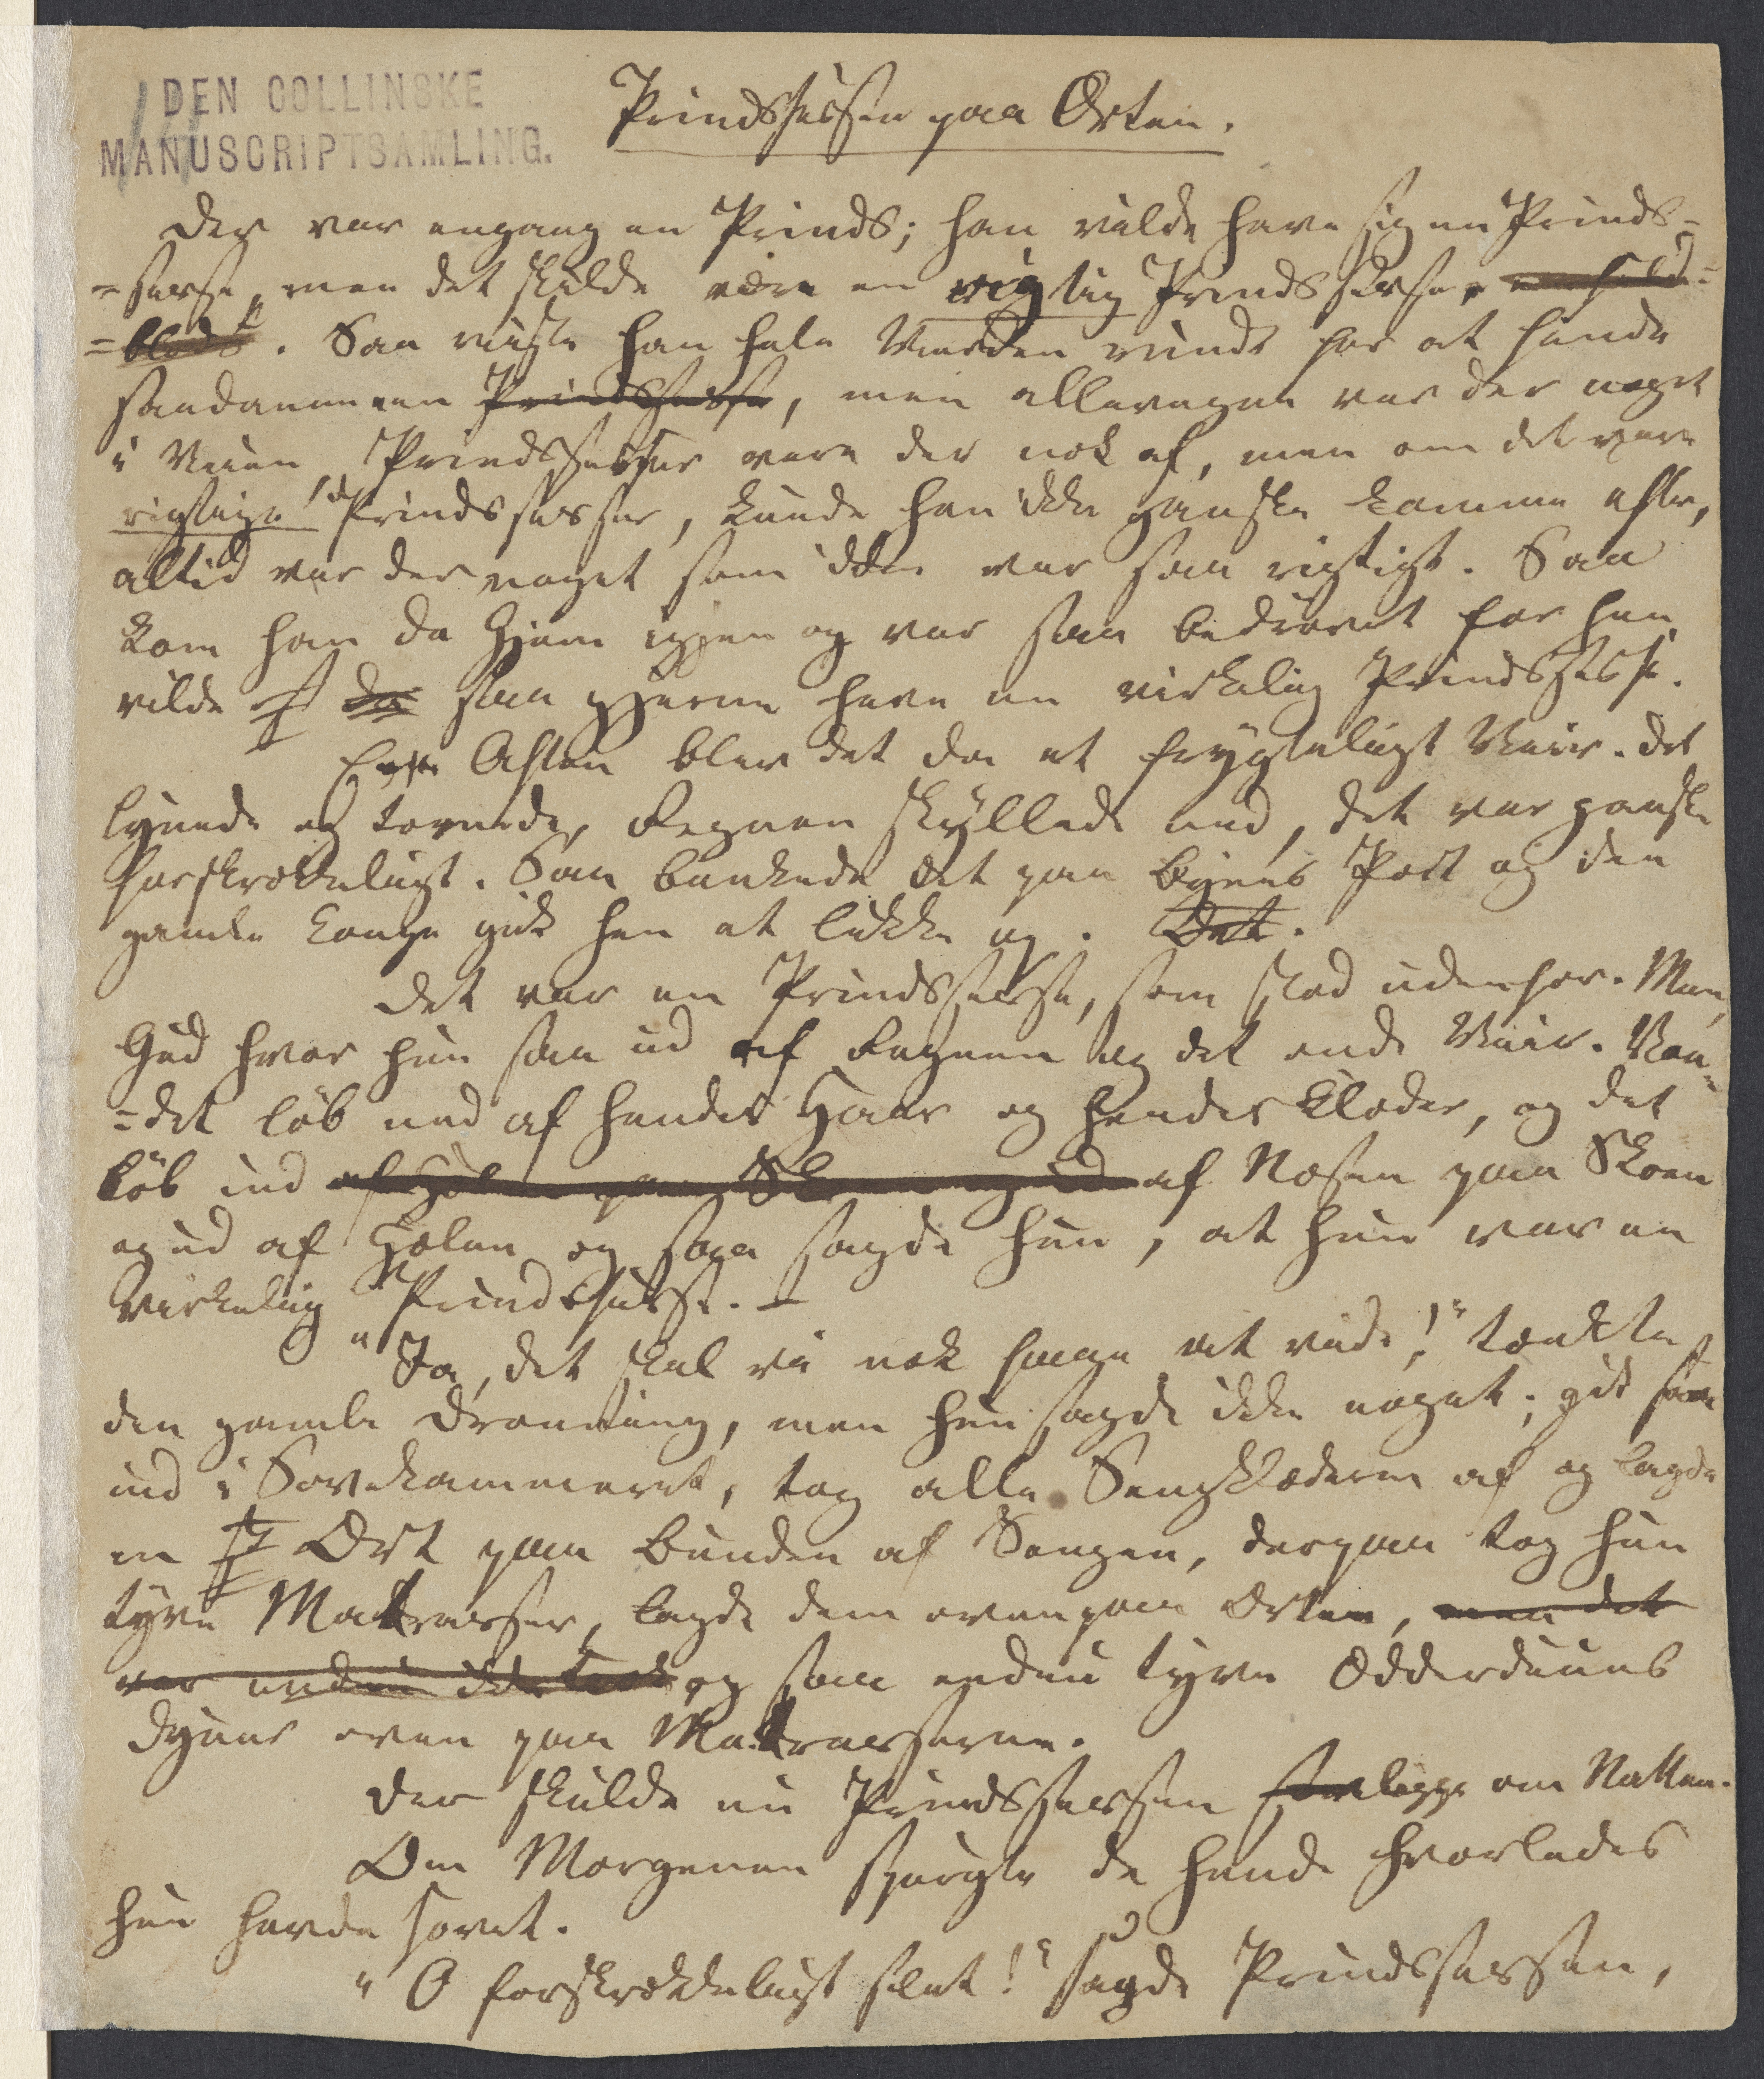 DEN COLLINSKE
MANUSCRIPTSAMLING.
Prindsessen paa Ærten.
Der var engang en Prinds; han vilde have sig en Prinds=
=sesse, men det skulde være en rigtig Prindsesse,
=blods. Saa reiste han hele Verden rundt for at finde
saadanneen Prindsesse, men allevegne var der noget
i Veien, Prindsesser vare der nok af, men om det vare
rigtige Prindsesser, kunde han ikke ganske komme efter,
altid var der noget som ikke var saa rigtigt. Saa
kom han da Hjem igjen og var saa bedrøvet for han
vilde da saa gjerne have en virkelig Prindsesse.
Aften blev det da et frygteligt Veir. Det
lynede og tornede, Regnen skyllede ned, det var ganske
forskrækkeligt. Saa bankede det paa Byens Port og den
gamle Konge gik hen at lukke op. Det.
Det var en Prindsesse, som stod udenfor. Men,
Gud hvor hun saa ud af Regnen og det onde Veir. Van=
=det løb ned af hendes Haar og hendes Klæder, og det
løb ind af Hælen paa Skoen og ud af Næsen paa Skoen
og ud af Hælen og saa sagde hun, at hun var en
virkelig Prindsesse. –
"Ja, det skal vi nok faae at vide!" tænkte
den gamle Dronning, men hun sagde ikke noget; gik saa
ind i Sovekammeret, tog alle Sengklæderne af og lagde
en Ært paa Bunden af Sengen, derpaa tog hun
tyve Matrasser, lagde dem ovenpaa Ærten, men det
var endnu ikke nok og saa endnu tyve Ædderduuns
Dyner oven paa Matrasserne.
Der skulde nu Prindsessen ligge om Natten.
Om Morgenen spurgte de hende hvorledes
hun havde sovet.
"O forskrækkeligt slet!" sagde Prindsessen,